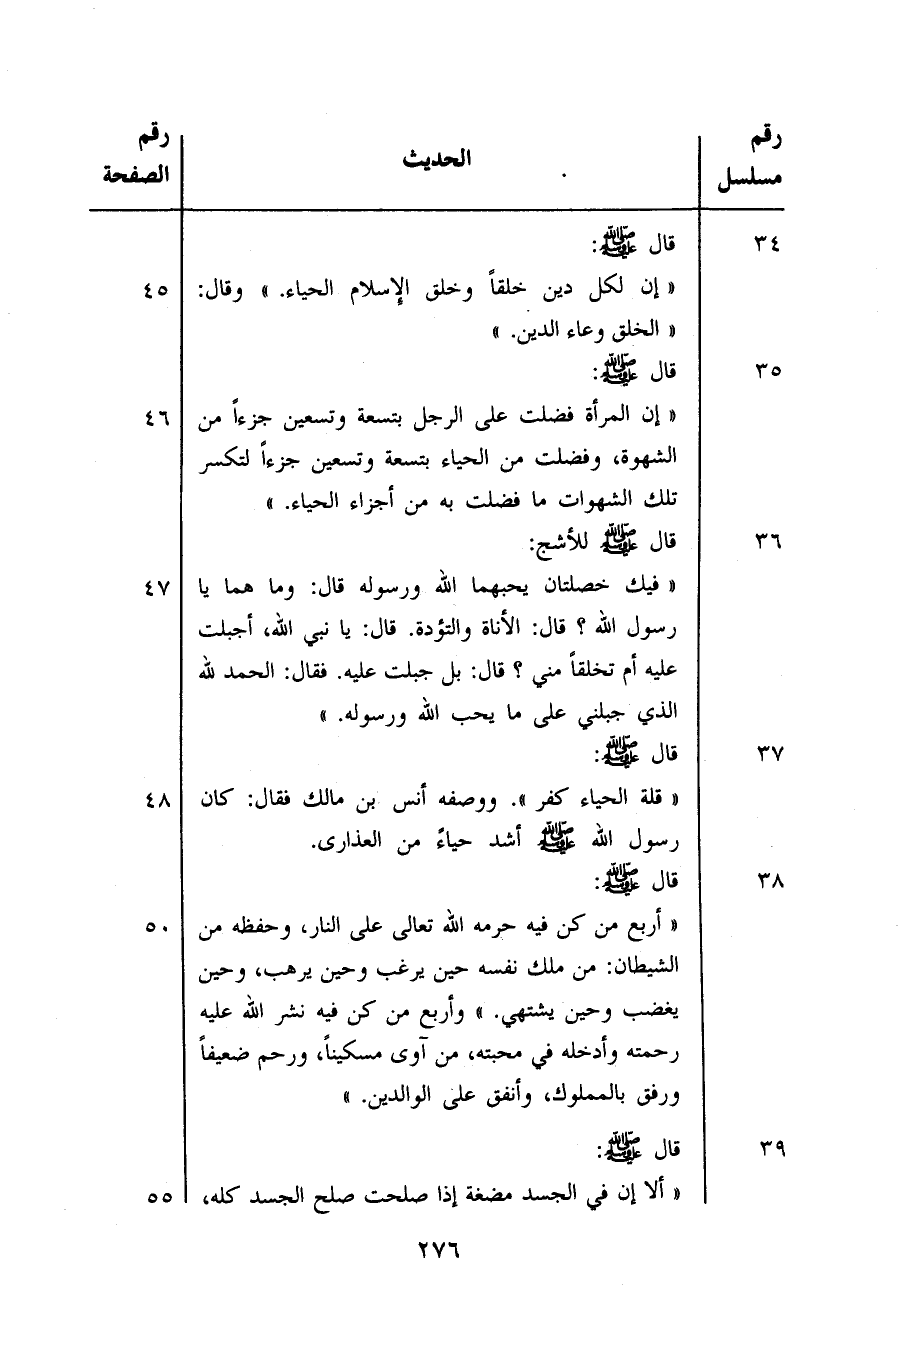 رقم مسلسل	الحديث	رقم الصفحة
٣٤	قال ﷺ:
« إن لكل دين خلقاً وخلق الإسلام الحياء. » وقال:	٤٥
« الخلق وعاء الدين. »
٣٥	قال ﷺ:
« إن المرأة فضلت على الرجل بتسعة وتسعين جزءاً من	٤٦
الشهوة، وفضلت من الحياء بتسعة وتسعين جزءاً لتكسر
تلك الشهوات ما فضلت به من أجزاء الحياء. »
٣٦	قال ﷺ للأشج:
« فيك خصلتان يحبهما الله ورسوله قال: وما هما يا	٤٧
رسول الله ؟ قال: الأناة والتؤدة. قال: يا نبي الله، أجبلت
عليه أم تخلقاً مني ؟ قال: بل جبلت عليه. فقال: الحمد لله
الذي جبلني على ما يحب الله ورسوله. »
٣٧	قال ﷺ:
« قلة الحياء كفر ». ووصفه أنس بن مالك فقال: كان	٤٨
رسول الله ﷺ أشد حياءً من العذارى.
٣٨	قال ﷺ:
« أربع من كن فيه حرمه الله تعالى على النار، وحفظه من	٥٠
الشيطان: من ملك نفسه حين يرغب وحين يرهب، وحين
يغضب وحين يشتهي. » وأربع من كن فيه نشر الله عليه
رحمته وأدخله في محبته، من آوى مسكيناً، ورحم ضعيفاً
ورفق بالمملوك، وأنفق على الوالدين. »
٣٩	قال ﷺ:
« ألا إن في الجسد مضغة إذا صلحت صلح الجسد كله،	٥٥
٢٧٦